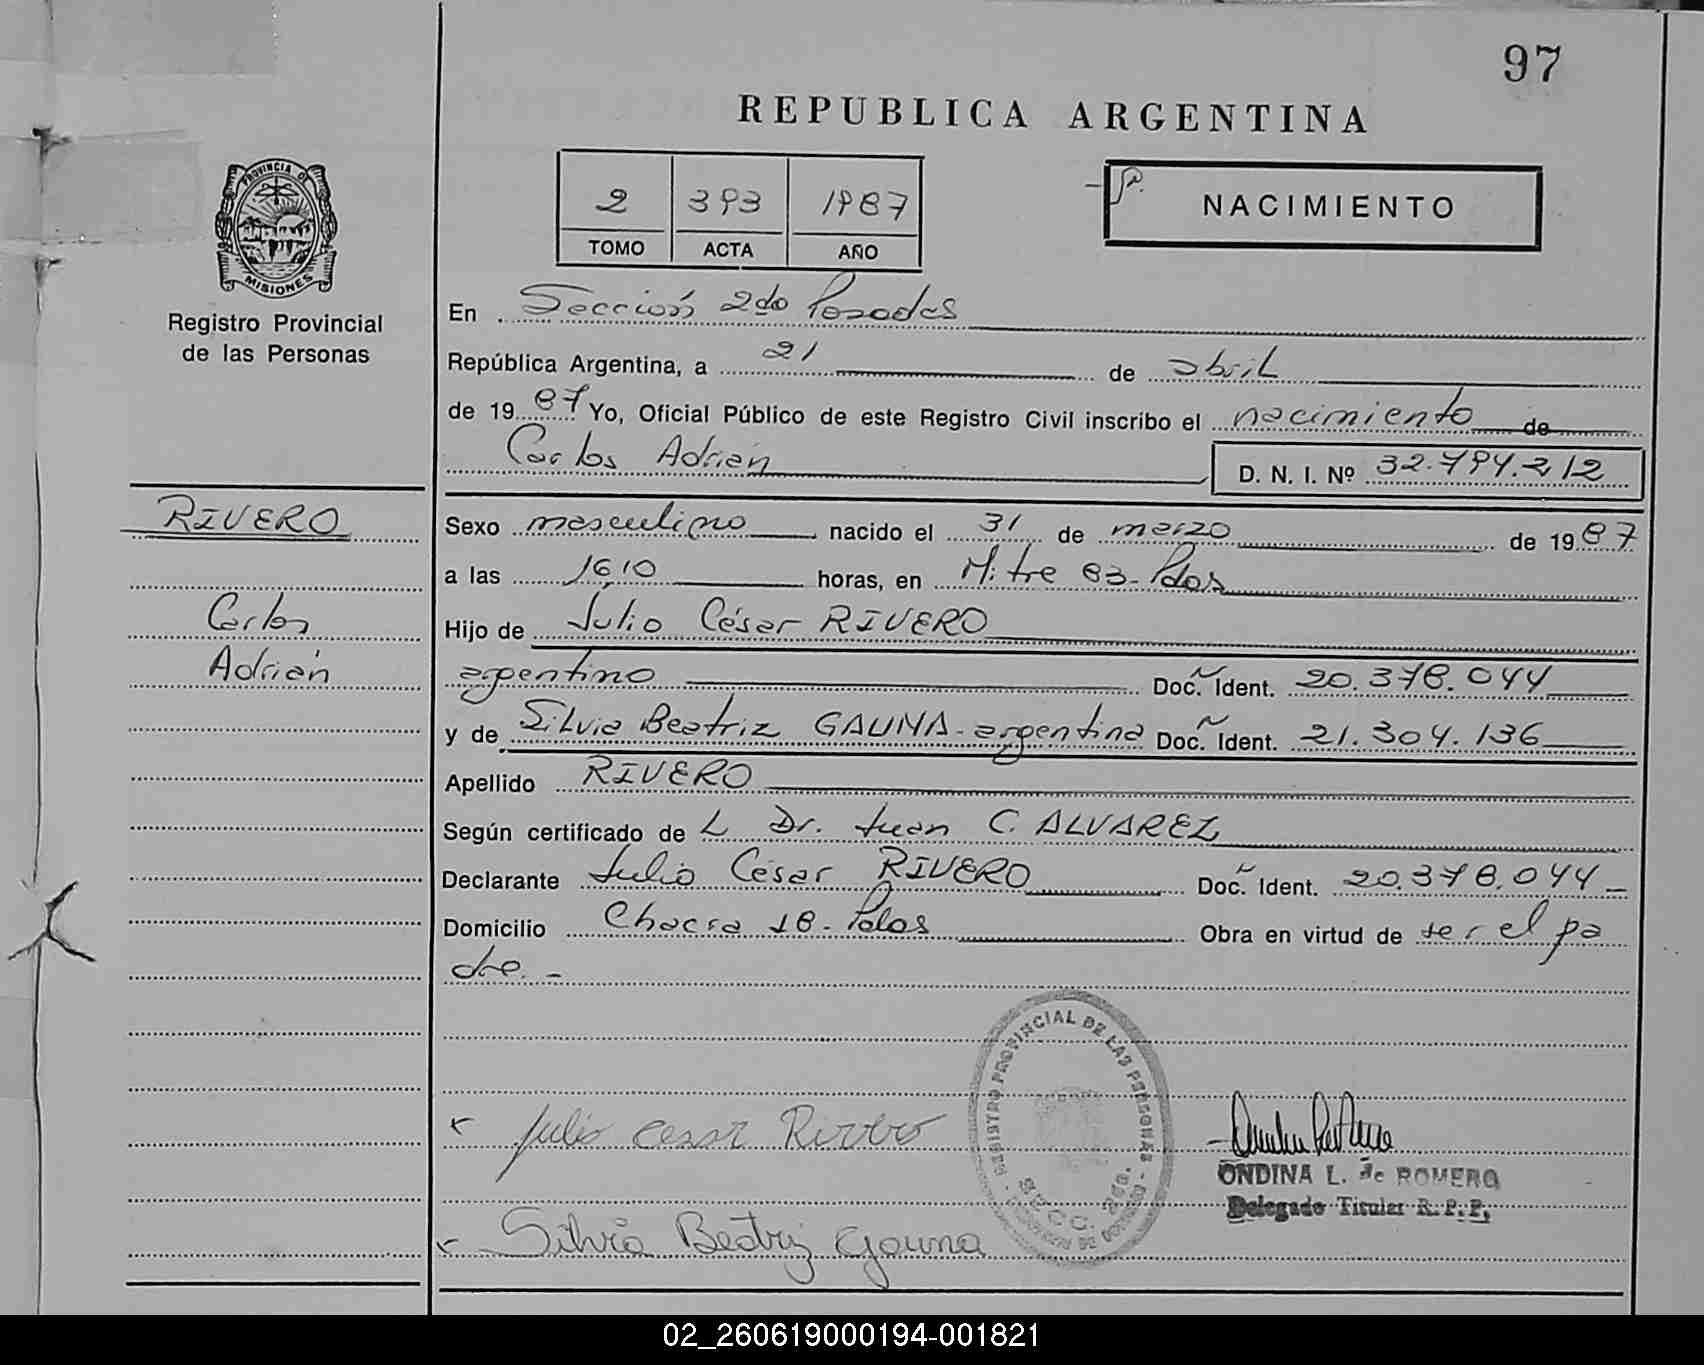 97
REPUBLICA ARGENTINA
PROVINCIA DE
MISIONES
Registro Provincial
de las Personas
2 393 1987
TOMO ACTA AÑO
NACIMIENTO
En Sección 2do Posadas
República Argentina, a 21 de abril
de 19 87 Yo, Oficial Público de este Registro Civil inscribo el nacimiento de
Carlos Adrián D. N. I. Nº 32.794.212
RIVERO
Carlos
Adrián
Sexo masculino nacido el 31 de marzo de 19 87
a las 16,10 horas, en Mitre 83- Pdas
Hijo de Julio César RIVERO
argentino Doc. Ident. 20.378.044
y de Silvia Beatriz GAUNA - argentina Doc. Ident. 21.304.136
Apellido RIVERO
Según certificado de L Dr. Juan C. ALVAREZ
Declarante Julio César RIVERO Doc. Ident. 20.378.044
Domicilio Chacra 18 - Pdas Obra en virtud de ser el pa
dre. -
REGISTRO PROVINCIAL DE LAS PERSONAS
SECC. 2da.
Julio Cesar Rivero
ONDINA L. de ROMERO
Delegado Titular R. P. P.
Silvia Beatriz Gauna
02_260619000194-001821